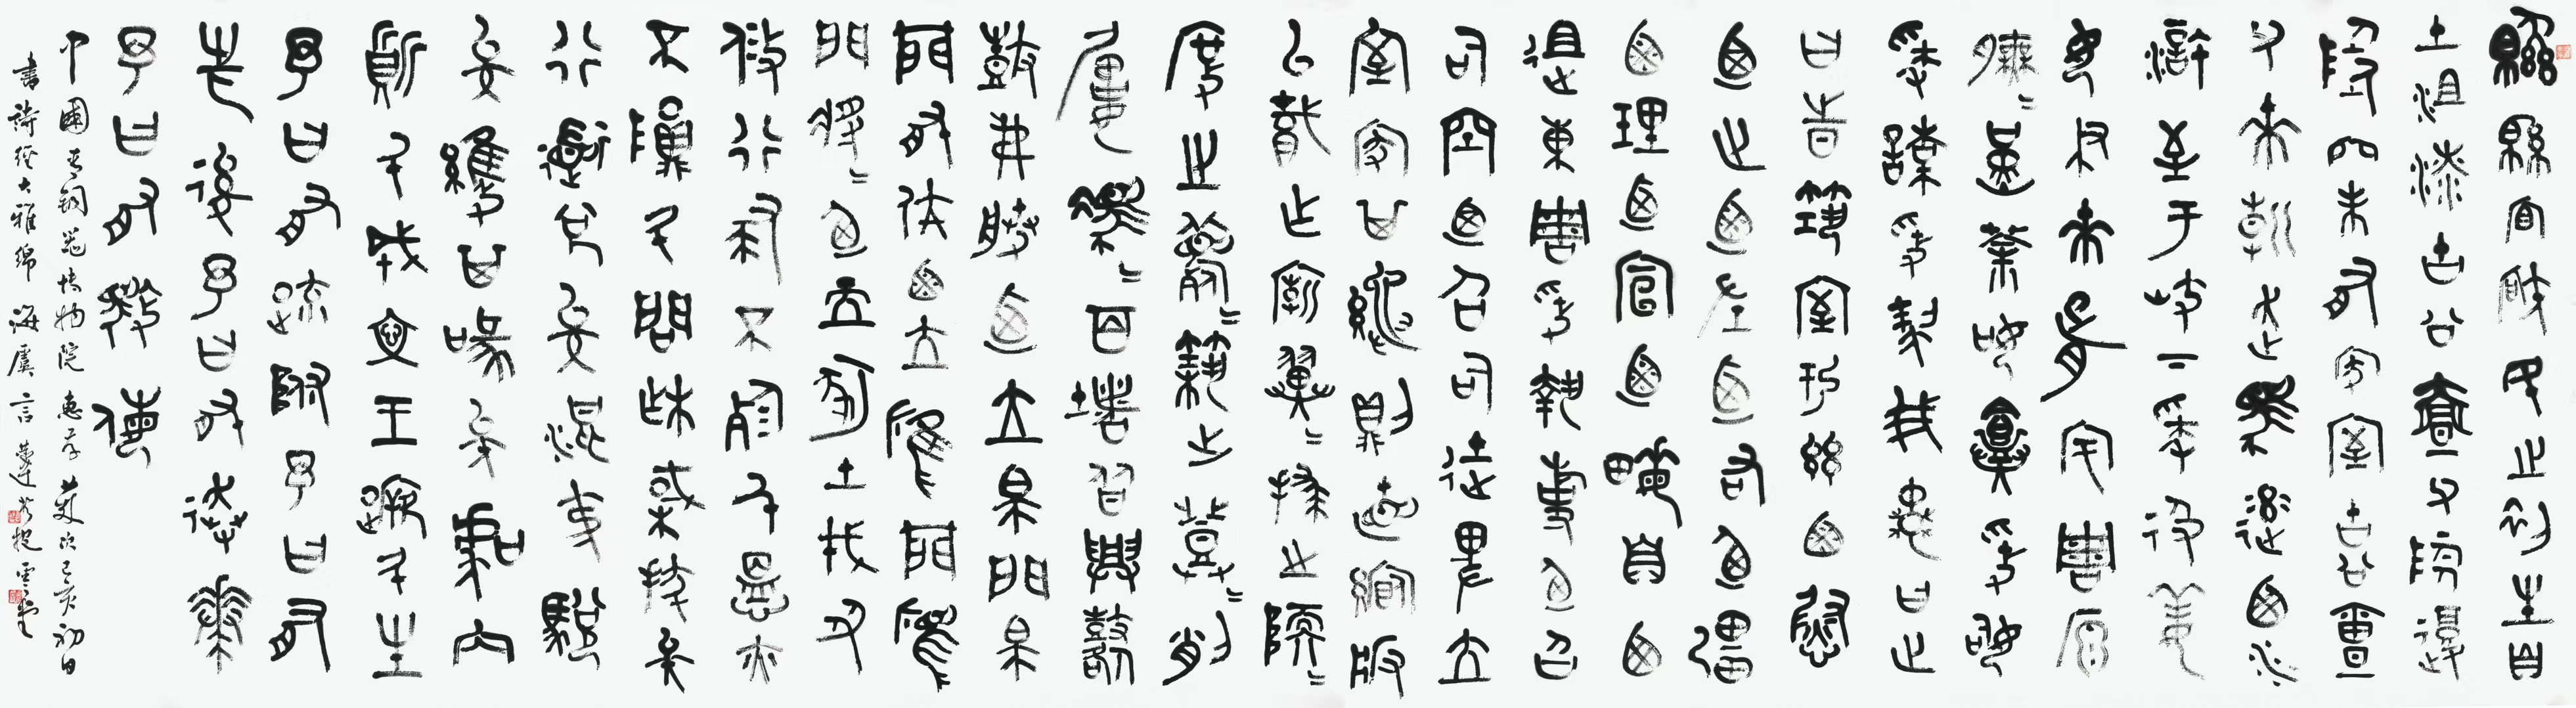 緜緜瓜瓞民之初生自
土沮漆古公亶父陶復
陶穴未有家室古公亶
父來朝走馬率西水
滸至于岐下爰及姜
女聿來胥宇周原
膴〻堇荼如飴爰始
爰謀爰契我龜曰止
曰時築室于茲迺慰
迺止迺左迺右迺疆
迺理迺宣迺畝自西
徂東周爰執事迺召
司空迺召司徒俾立
室家其繩則直縮版
以載作廟翼〻捄之陾〻
度之薨〻築之登〻削
屢馮〻百堵皆興鼛
鼓弗勝迺立皋門皋
門有伉迺立應門應
門將〻迺立冢土戎醜
攸行肆不殄厥慍亦
不隕厥問柞棫拔矣
行道兌矣混夷駾
矣維其喙矣虞芮
質厥成文王蹶厥生
予曰有疏附予曰有
先後予曰有奔奏
予曰有禦侮
中國青銅器博物院惠存歲次己亥初
書詩經大雅綿海虞言